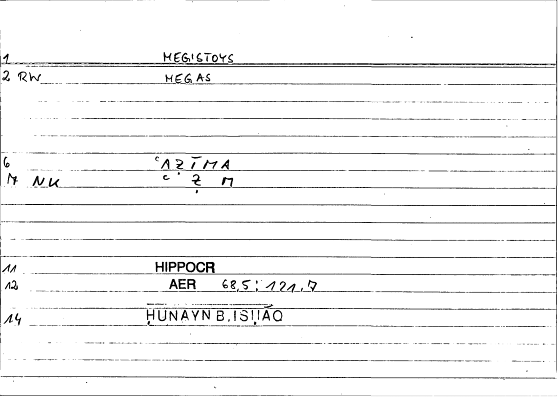 1 MEGISTOYS
2 RW MEGAS
6 ʿAẒĪMA
7 NK ʿ Ẓ M
11 HIPPOCR
12 AER 68,5 : 121,7
14 ḤUNAYN B. ISḤĀQ